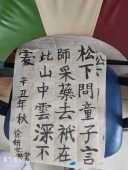 松下問童子言
師采藥去祇在
此山中雲深不
處 辛丑年秋